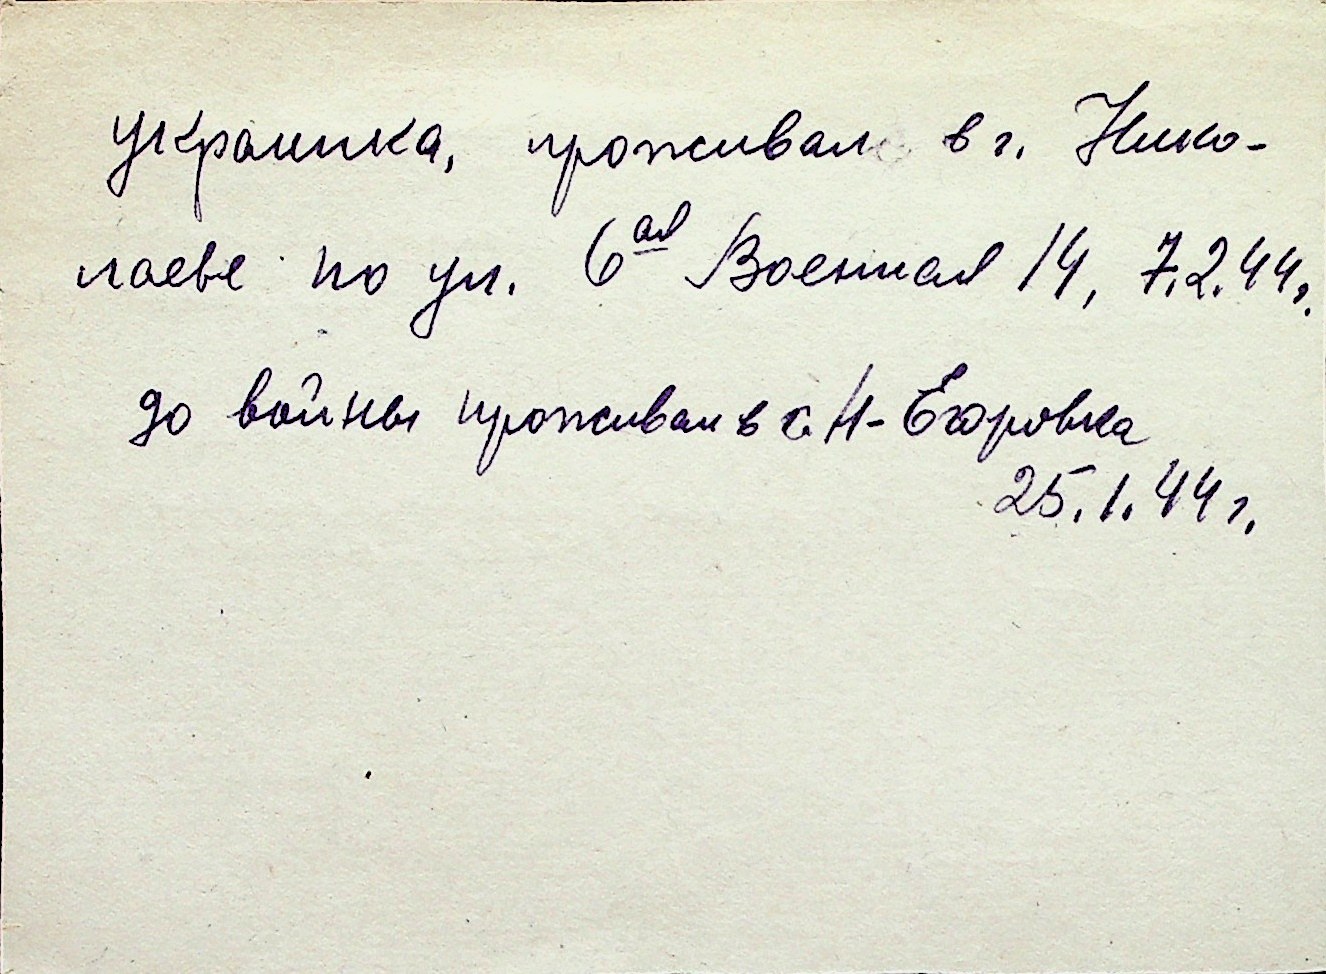 украинка, проживал в г. Нико-
лаеве по ул. 6ая Военная 14, 7.2.44г.
до войны проживал в с. Н-Егоровка
25.1.44 г.